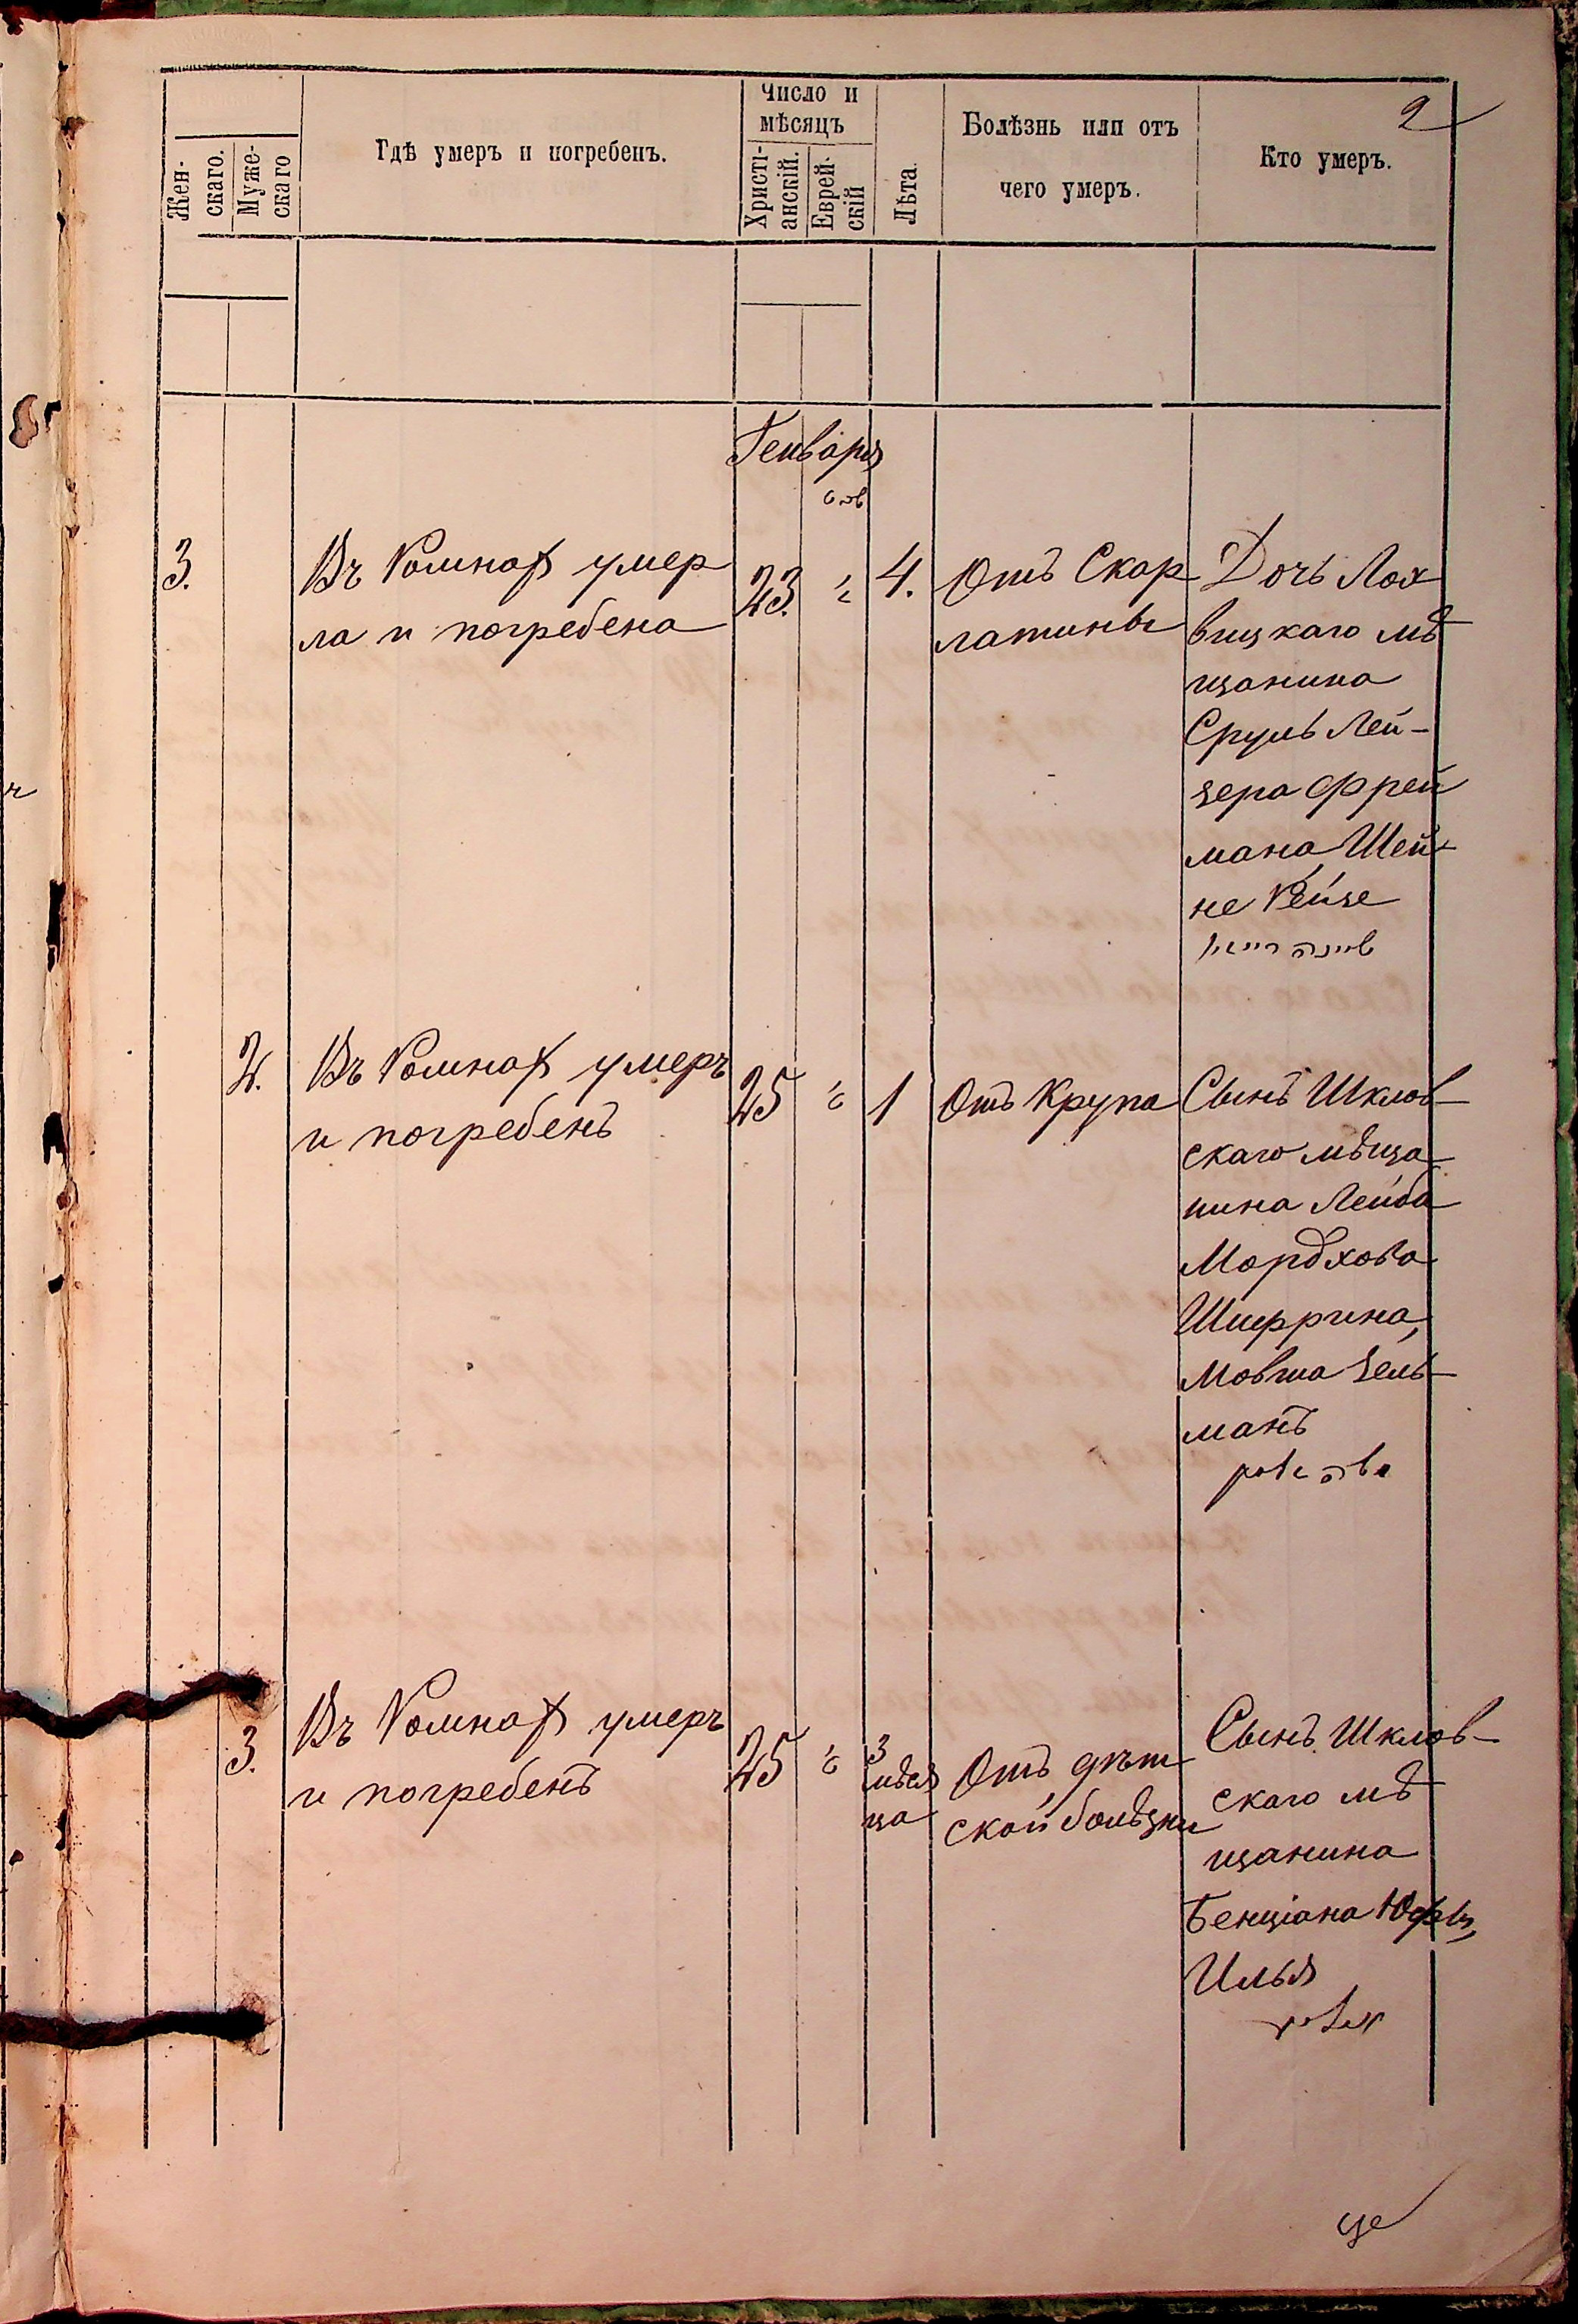 2
Жен-
скаго.
Муже-
скаго
Гдѣ умеръ и погребенъ.
Число и
мѣсяцъ
Христі-
анскій.
Еврей-
скій
Лѣта.
Болѣзнь или отъ
чего умеръ.
Кто умеръ.
Генваря
שבט
3.
Въ Ромнах умер
ла и погребена
23.
4.
Отъ Скар
латины
Дочь Лох
вицкаго мѣ
щанина
Сруль Лей-
зера Фрей
мана Шей-
не Рейзе
שיינה רייזי
2.
Въ Ромнах умеръ
и погребенъ
25
1
Отъ Крупа
Сынъ Шклов-
скаго мѣща
нина Лейба
Мордхова
Шифрина,
Мовша Зель-
манъ
משה זלמן
3.
Въ Ромнах умеръ
и погребенъ
25
3
мѣся
ца
Отъ дѣт
ской болѣзни
Сынъ Шклов-
скаго мѣ
щанина
Бенціана
Илья